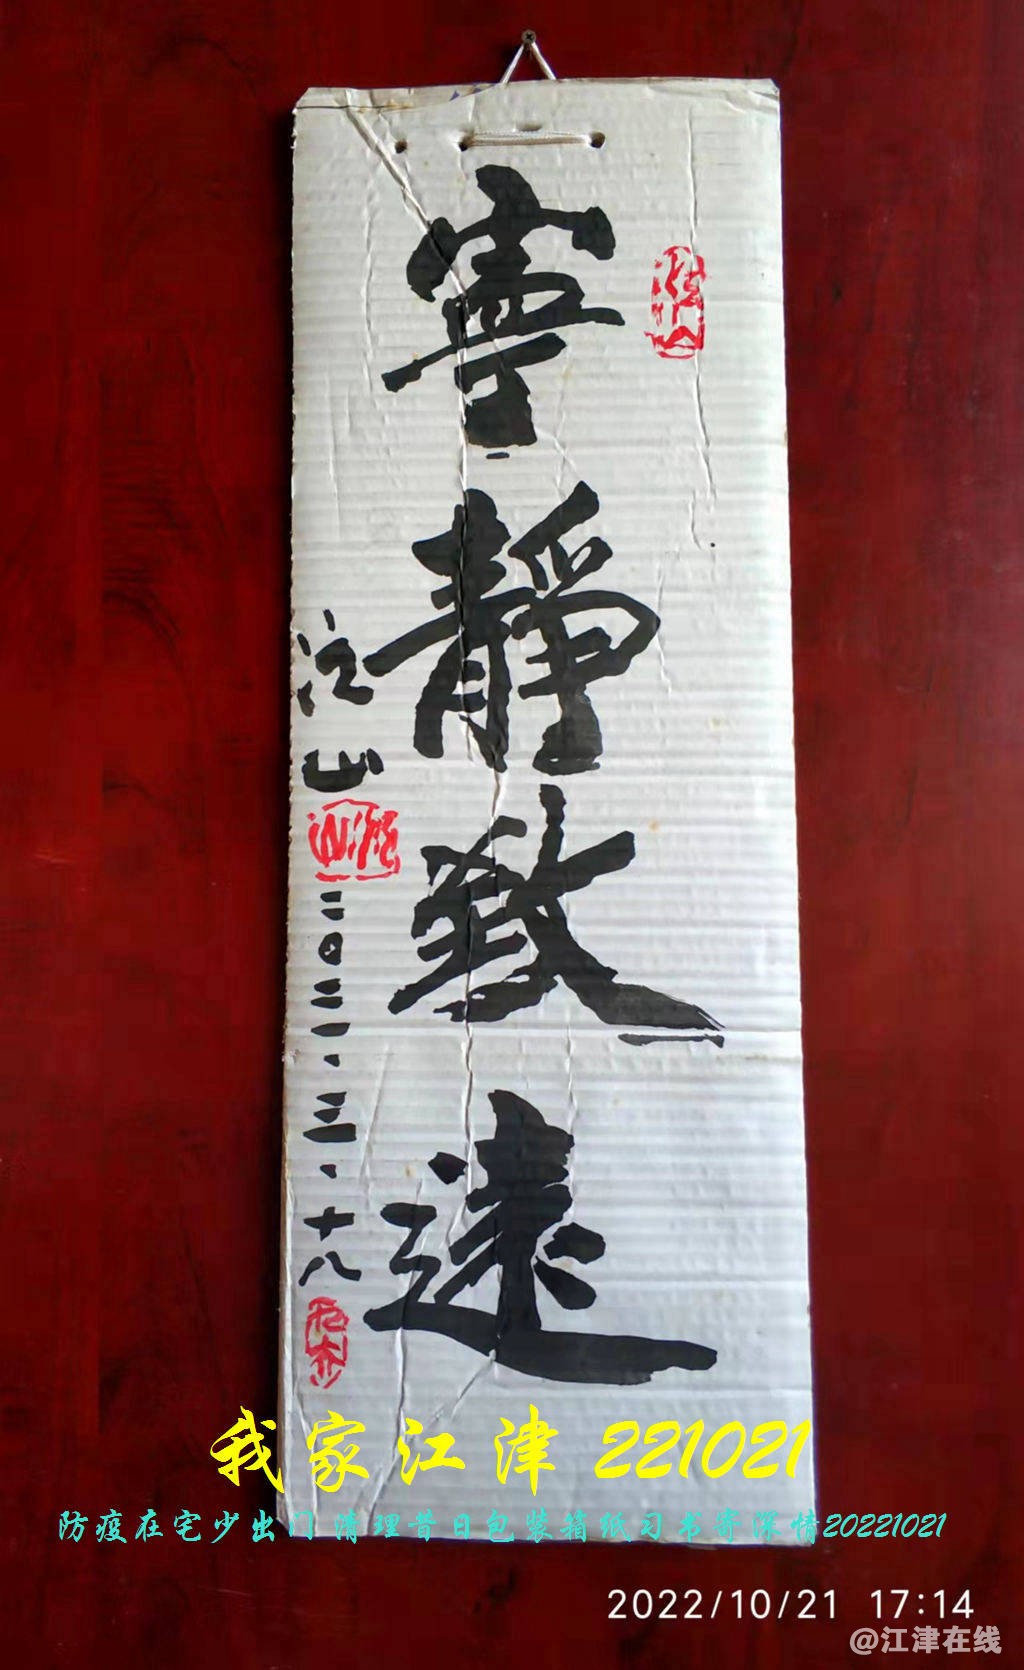 寧靜致遠
江山
二0二二.三.十八
我家江津 221021
防疫在宅少出门 清理昔日包装箱纸习书寄深情20221021
2022/10/21 17:14
@江津在线